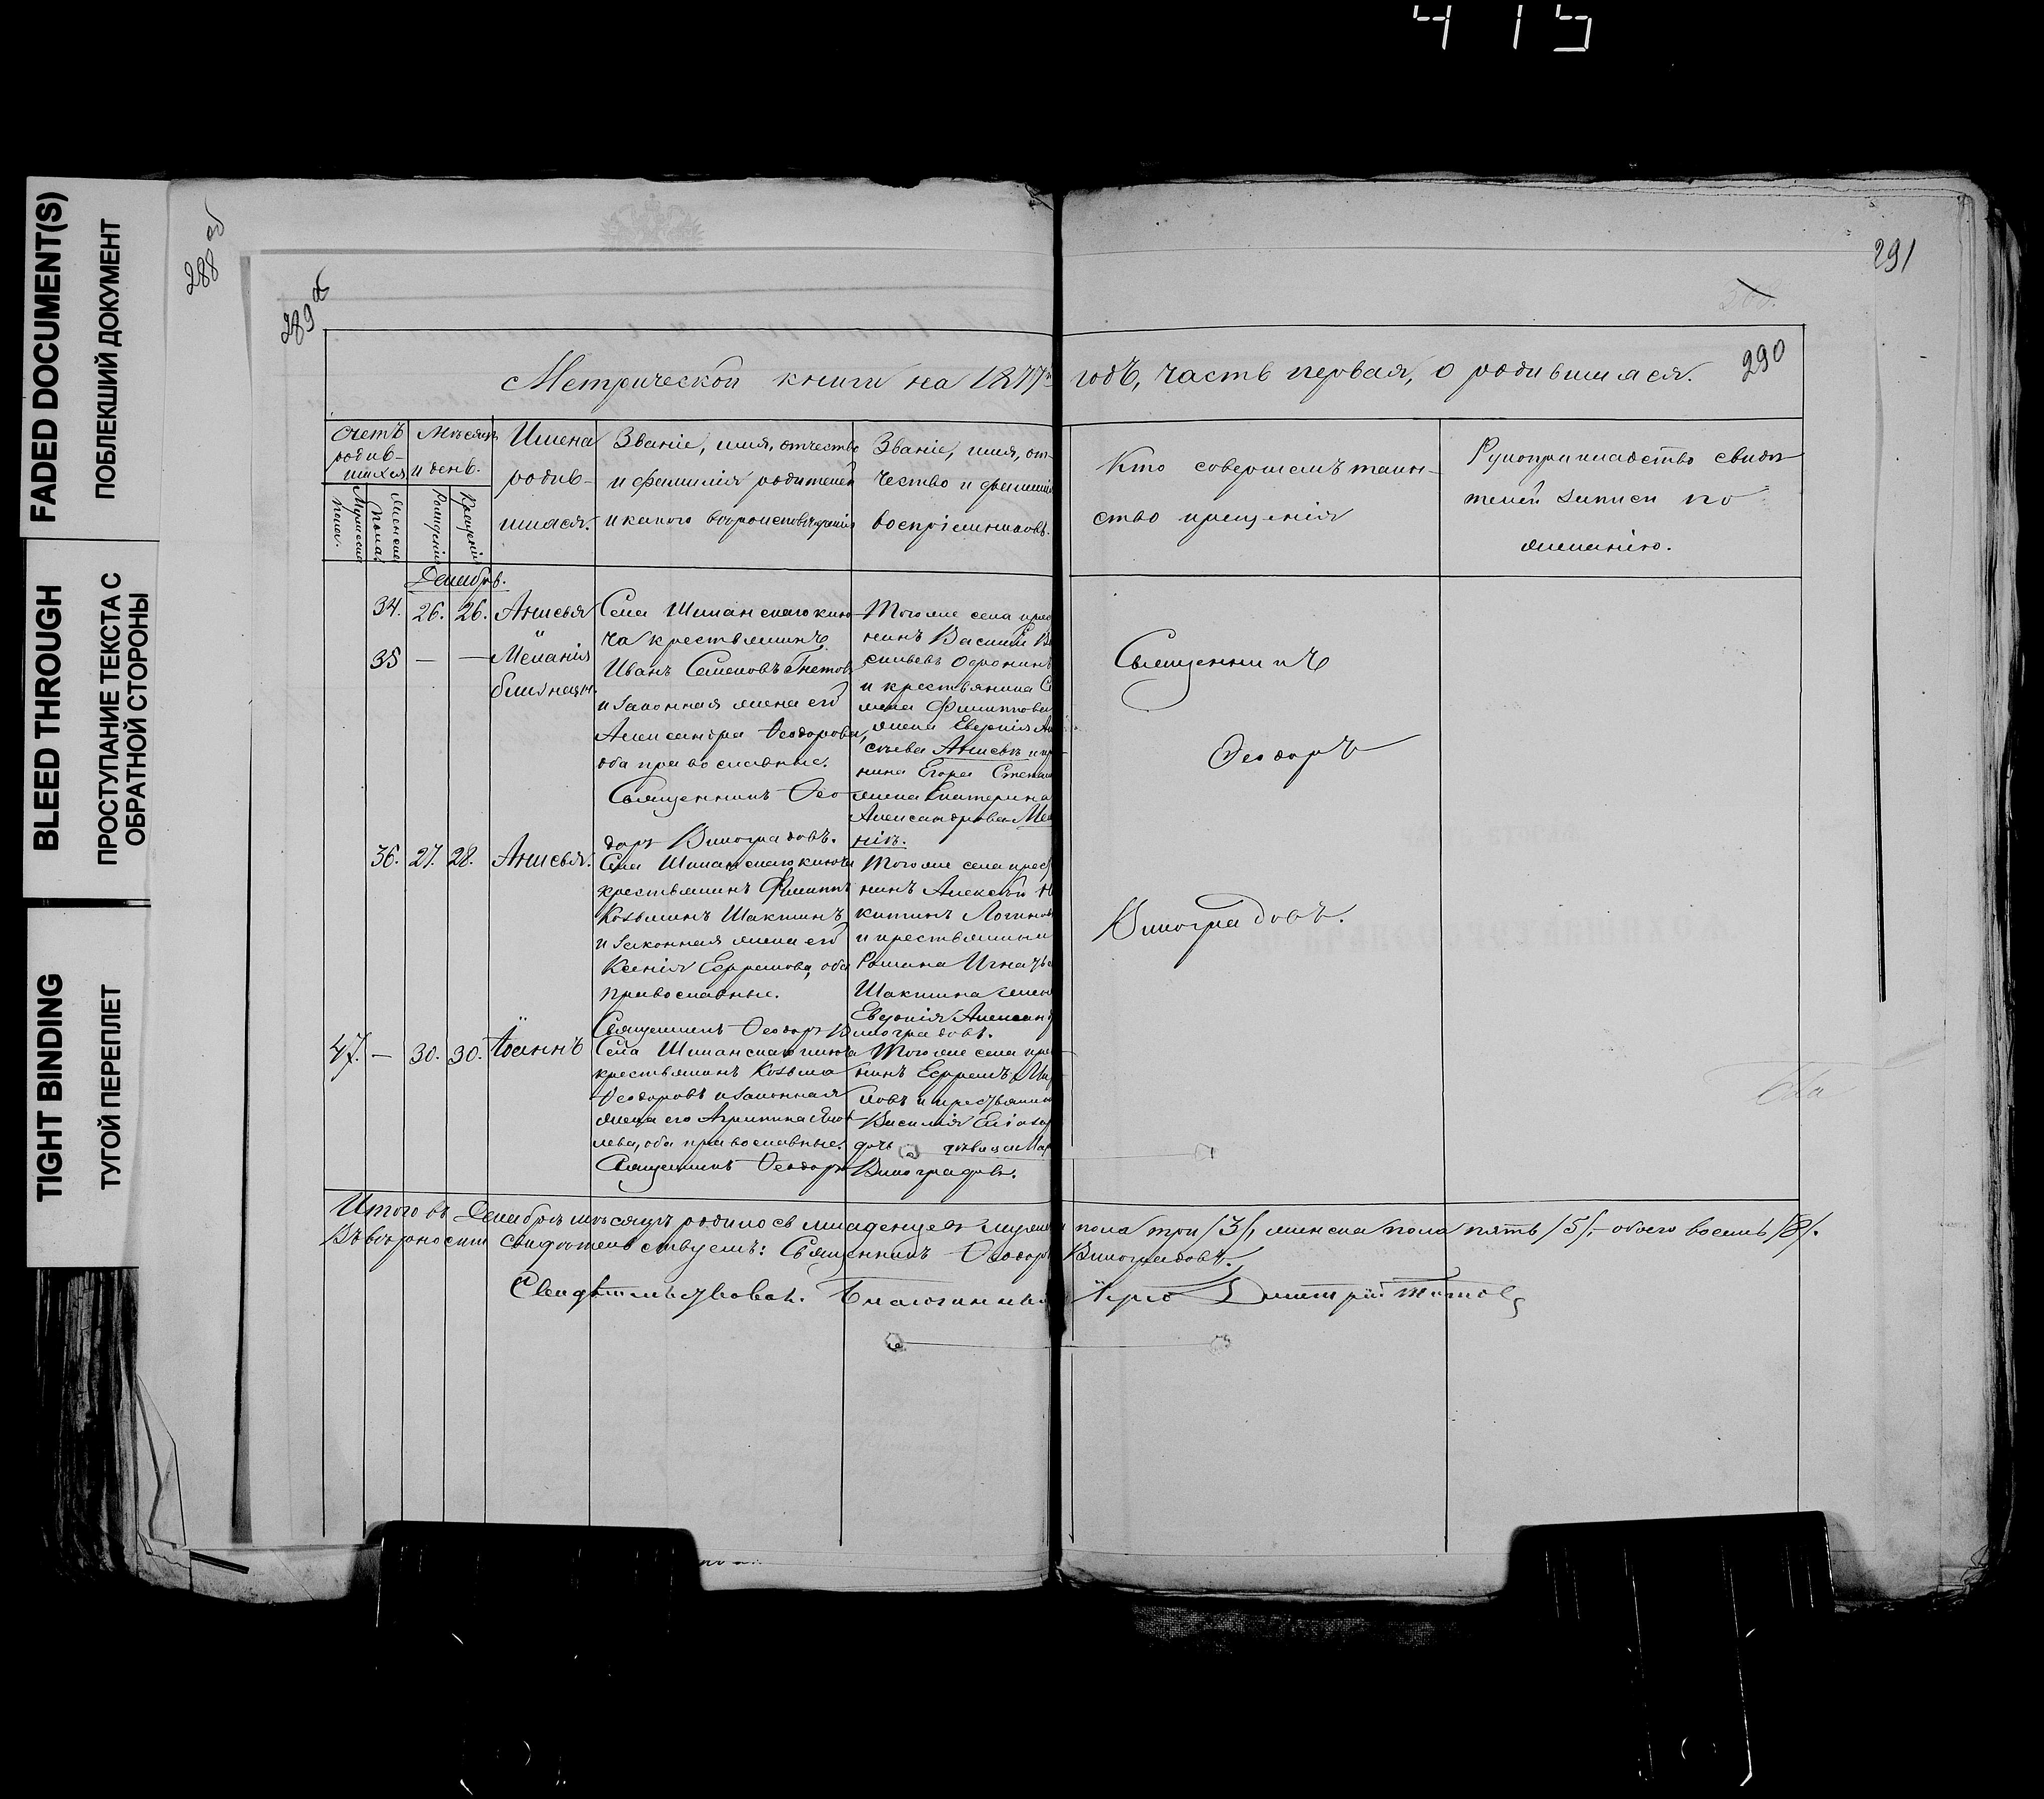 415
FADED DOCUMENT(S)
ПОБЛЕКШИЙ ДОКУМЕНТ
BLEED THROUGH
ПРОСТУПАНИЕ ТЕКСТА С
ОБРАТНОЙ СТОРОНЫ
TIGHT BINDING
ТУГОЙ ПЕРЕПЛЕТ
288 об
289 об
291
290
Метрической книги на 1877й годъ, часть первая, о родившихся.
Счетъ
родив-
шихся
Мужеска
пола.
Женска
пола.
Мѣсяцъ
и день.
Рожденія
Крещенія
Имена
родив-
шихся.
Званіе, имя, отчество
и фамилія родителей
и какого вѣроисповѣданія
Званіе, имя, от-
чество и фамилія
воспріемниковъ.
Кто совершалъ таин-
ство крещенія
Рукоприкладство свидѣ-
телей записи по
желанію.
Декабрь.
34. 26. 26. Анисья
35 — — Меланія
близнецы.
Села
крестьянинъ
Иванъ Семеновъ
и законная жена его
Александра Ѳеодорова,
оба православные.
Священникъ Ѳео-
доръ Виноградовъ.
Того же села крес
нинъ Василій Ва
сильевъ
и крестьянина Се
мена Филиппова
жена Евдокія
Анисьѣ и кр
нина Егора Степан
жена Екатерина
Александрова Мела
ніѣ.
36. 27. 28. Анисья.
Села
крестьянинъ Филиппъ
Козьминъ Шакшинъ
и законная жена его
Ксенія Ефремова, оба
православные.
Священникъ Ѳеодоръ Виноградовъ.
Того же села крест
нинъ Алексѣй Ни
китинъ Логинов
и крестьянина
Романа Игнатье
Шакшина жена
Евдокія Александ
47. — 30. 30. Іоаннъ
Села
крестьянинъ Козьма
Ѳеодоровъ и законная
жена его Агрипина
лева, оба православные.
Священникъ Ѳеодоръ Виноградовъ.
Того же села крес
нинъ Ефремъ
ловъ и крестьянина
Василія
дочь дѣвица Мар
Священникъ
Ѳеодоръ
Виноградовъ.
Итого въ Декабрѣ мѣсяцѣ родилось младенцевъ мужеска пола три /3/, женска пола пять /5/, обоего восемь /8/.
Въ вѣрности свидѣтельствуемъ: Священникъ Ѳеодоръ Виноградовъ.
Свидѣтельствовал. Благочинный Іерей Димитрій Титовъ